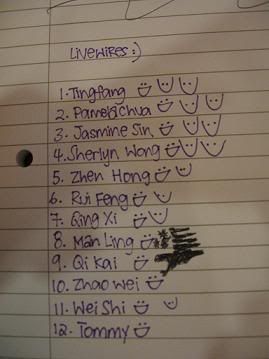 Livewires:)
1. Tingfang
2. Pamela chua
3. Jasmine Sin
4. Sherlyn Wong
5. Zhen Hong
6. Rui Feng
7. Qing Xi
8. Man Ling
9. Qi Kai
10. Zhao Wei
11. Wei Shi
12. Tommy